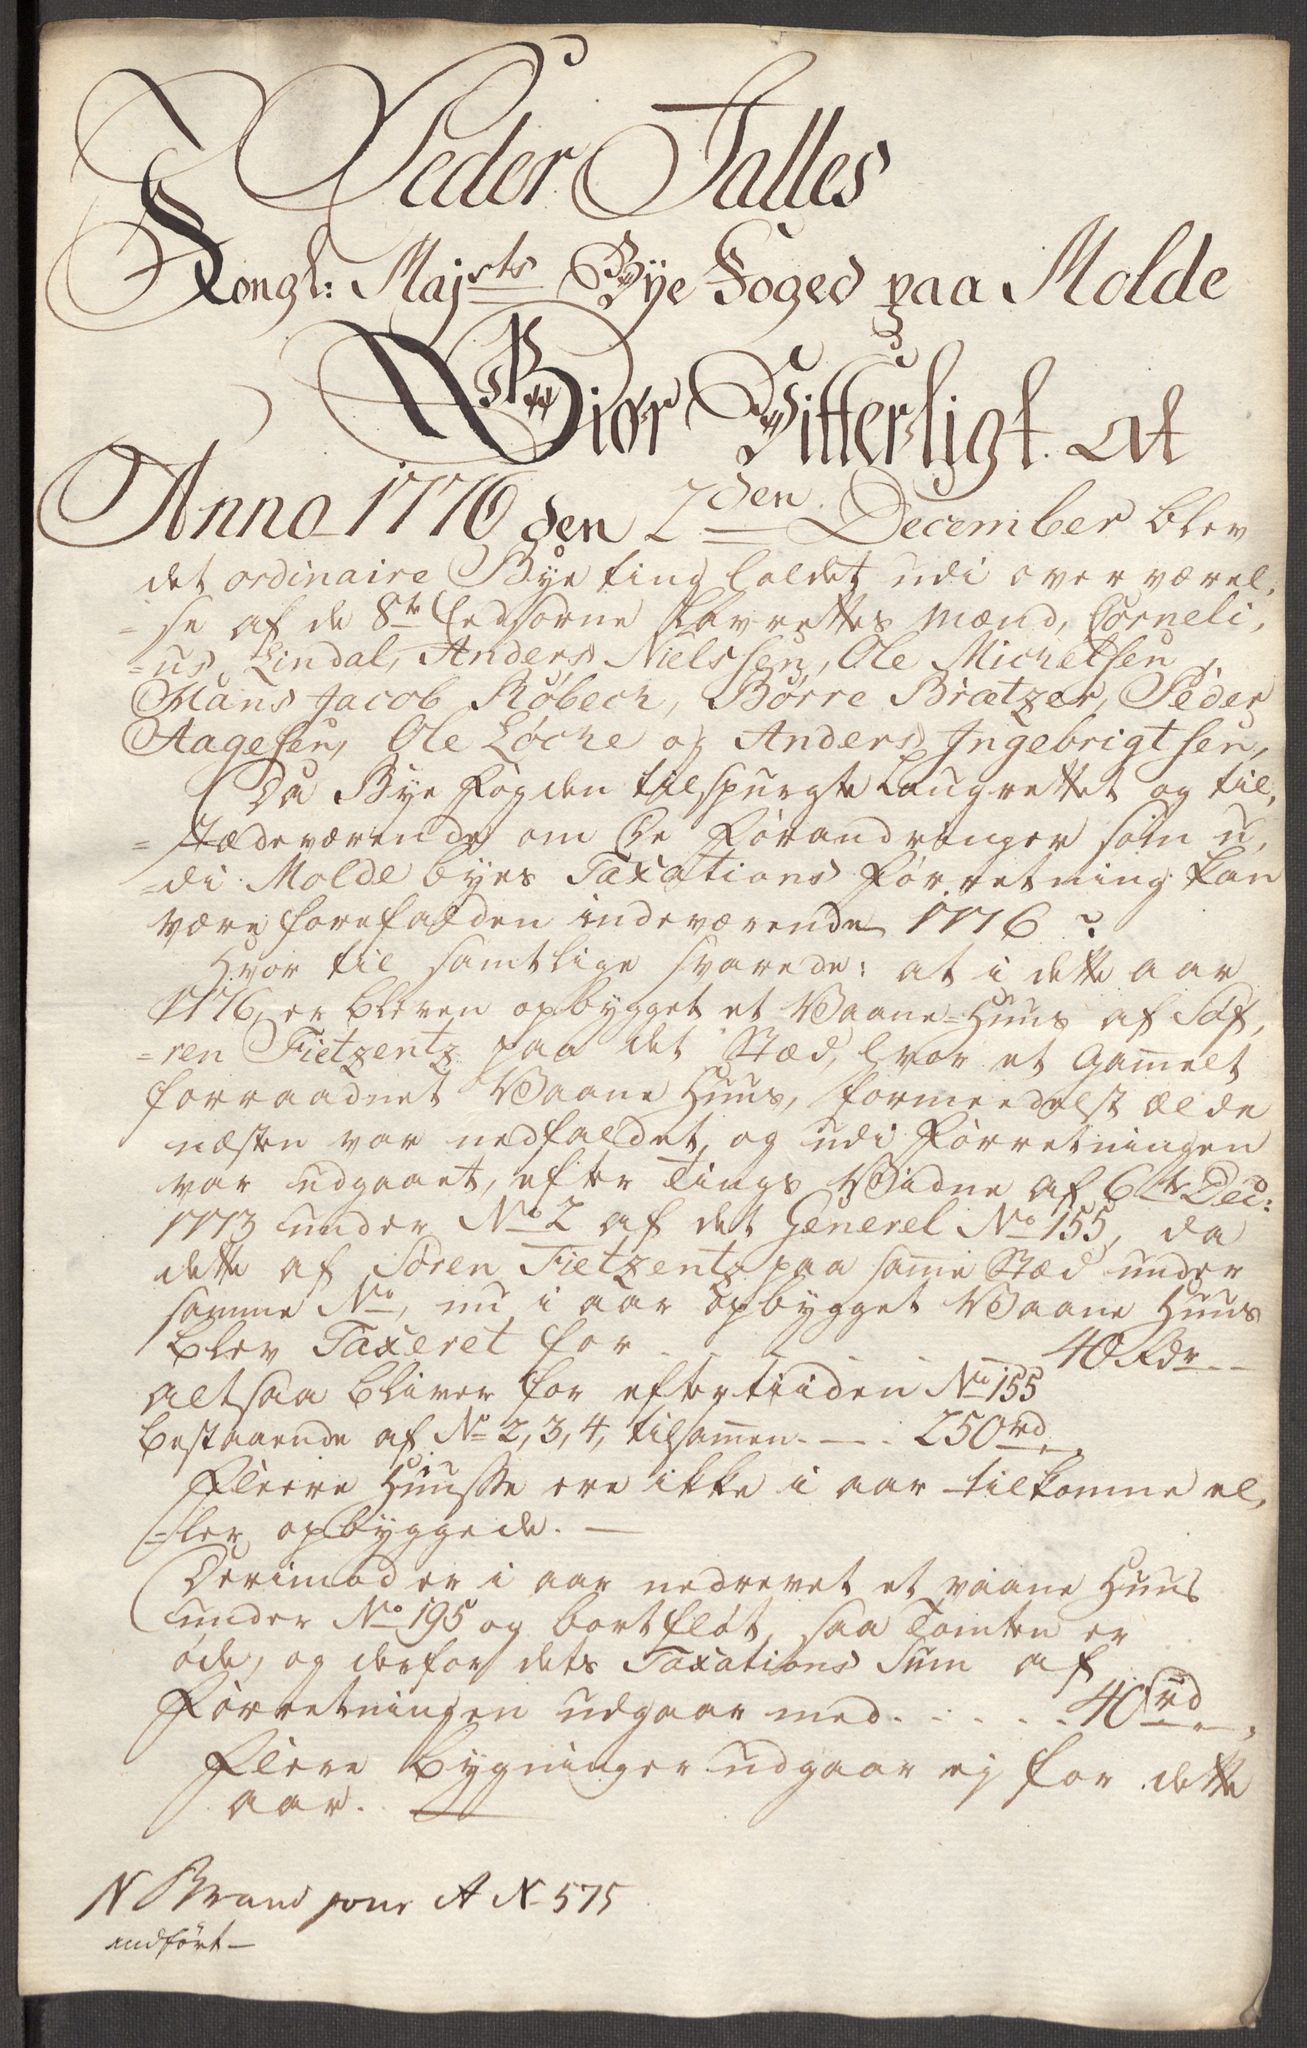 Peder Falles
Kongl: Majsts Bye Foged paa Molde
Giør Vitterligt at
Anno 1776 den 2den December blev
det ordinaire Bye ting holdet udi overværel,
=se af de 8te Eedsorne Lavrettes Mænd, Corneli,
=us Lindal, Anders Nielssen, Ole Michelsen,
Mans Jacob Røbech, Børre Brætzer, Peder
Aagesen, Ole Løche og Anders Ingebrigtsen,
Da Bye Fogden tilspurgte Laugrettet og til,
=stædeværende om de Forandringer som u,
=di Molde byes Taxations Forretning kan
være forefalden indeværende 1776?
Hvor til samtlige svarede: at i dette aar
1776, er bleven opbygget et Vaane=Huus af Søf,
=ren Fietzentz paa det Stæd, hvor et Gamelt
forraadnet Vaane Huus, formeedelst ælde
næsten var nedfaldet, og udi Forretningen
var udgaaet, efter Tings Vidne af 6te Dec:
1773 under No 2 af det Generel No 155, da
dette af Søren Fietzentz paa same Stæd under
samme No, nu i aar opbygget Vaane Huus
blev Taxeret for . . . . . . 40 Rdr - -
altsaa bliver for eftertiiden No 155
bestaaende af No 2, 3, 4, tilsamen. - . 250 rd - .
Fleere Huusse ere ikke i aar tilkomne el,
=ler opbyggede. -
Derimod er i aar nedrevet et vaane Huus
under No 195 og bortfløt, saa Tomten er
øde, og derfor dets Taxations Sum af
Forretningen udgaar med . . . . . 40 rd - .
Flere bygninger udgaar ej for dette
aar.
N Brand jour A N 575
indført -